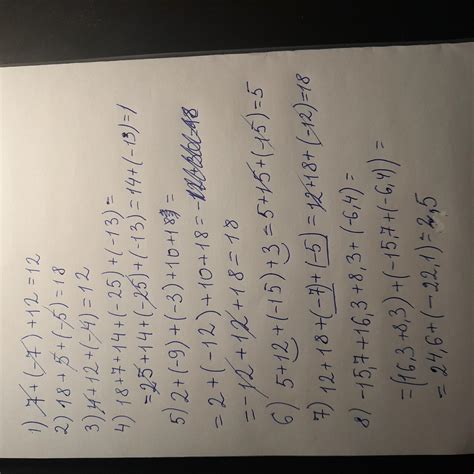 1) 7+(-7)+12=12
2) 18+5+(-5)=18
3) 4+12+(-4)=12
4) 18+7+14+(-25)+(-13)=
=25+14+(-25)+(-13)=14+(-13)=1
5) 2+(-9)+(-3)+10+18=
=2+(-12)+10+18=
=-12+12+18=18
6) 5+12+(-15)+3=5+15+(-15)=5
7) 12+18+(-7)+(-5)=12+18+(-12)=18
8) -15,7+16,3+8,3+(-6,4)=
=(16,3+8,3)+(-15,7+(-6,4))=
=24,6+(-22,1)=2,5